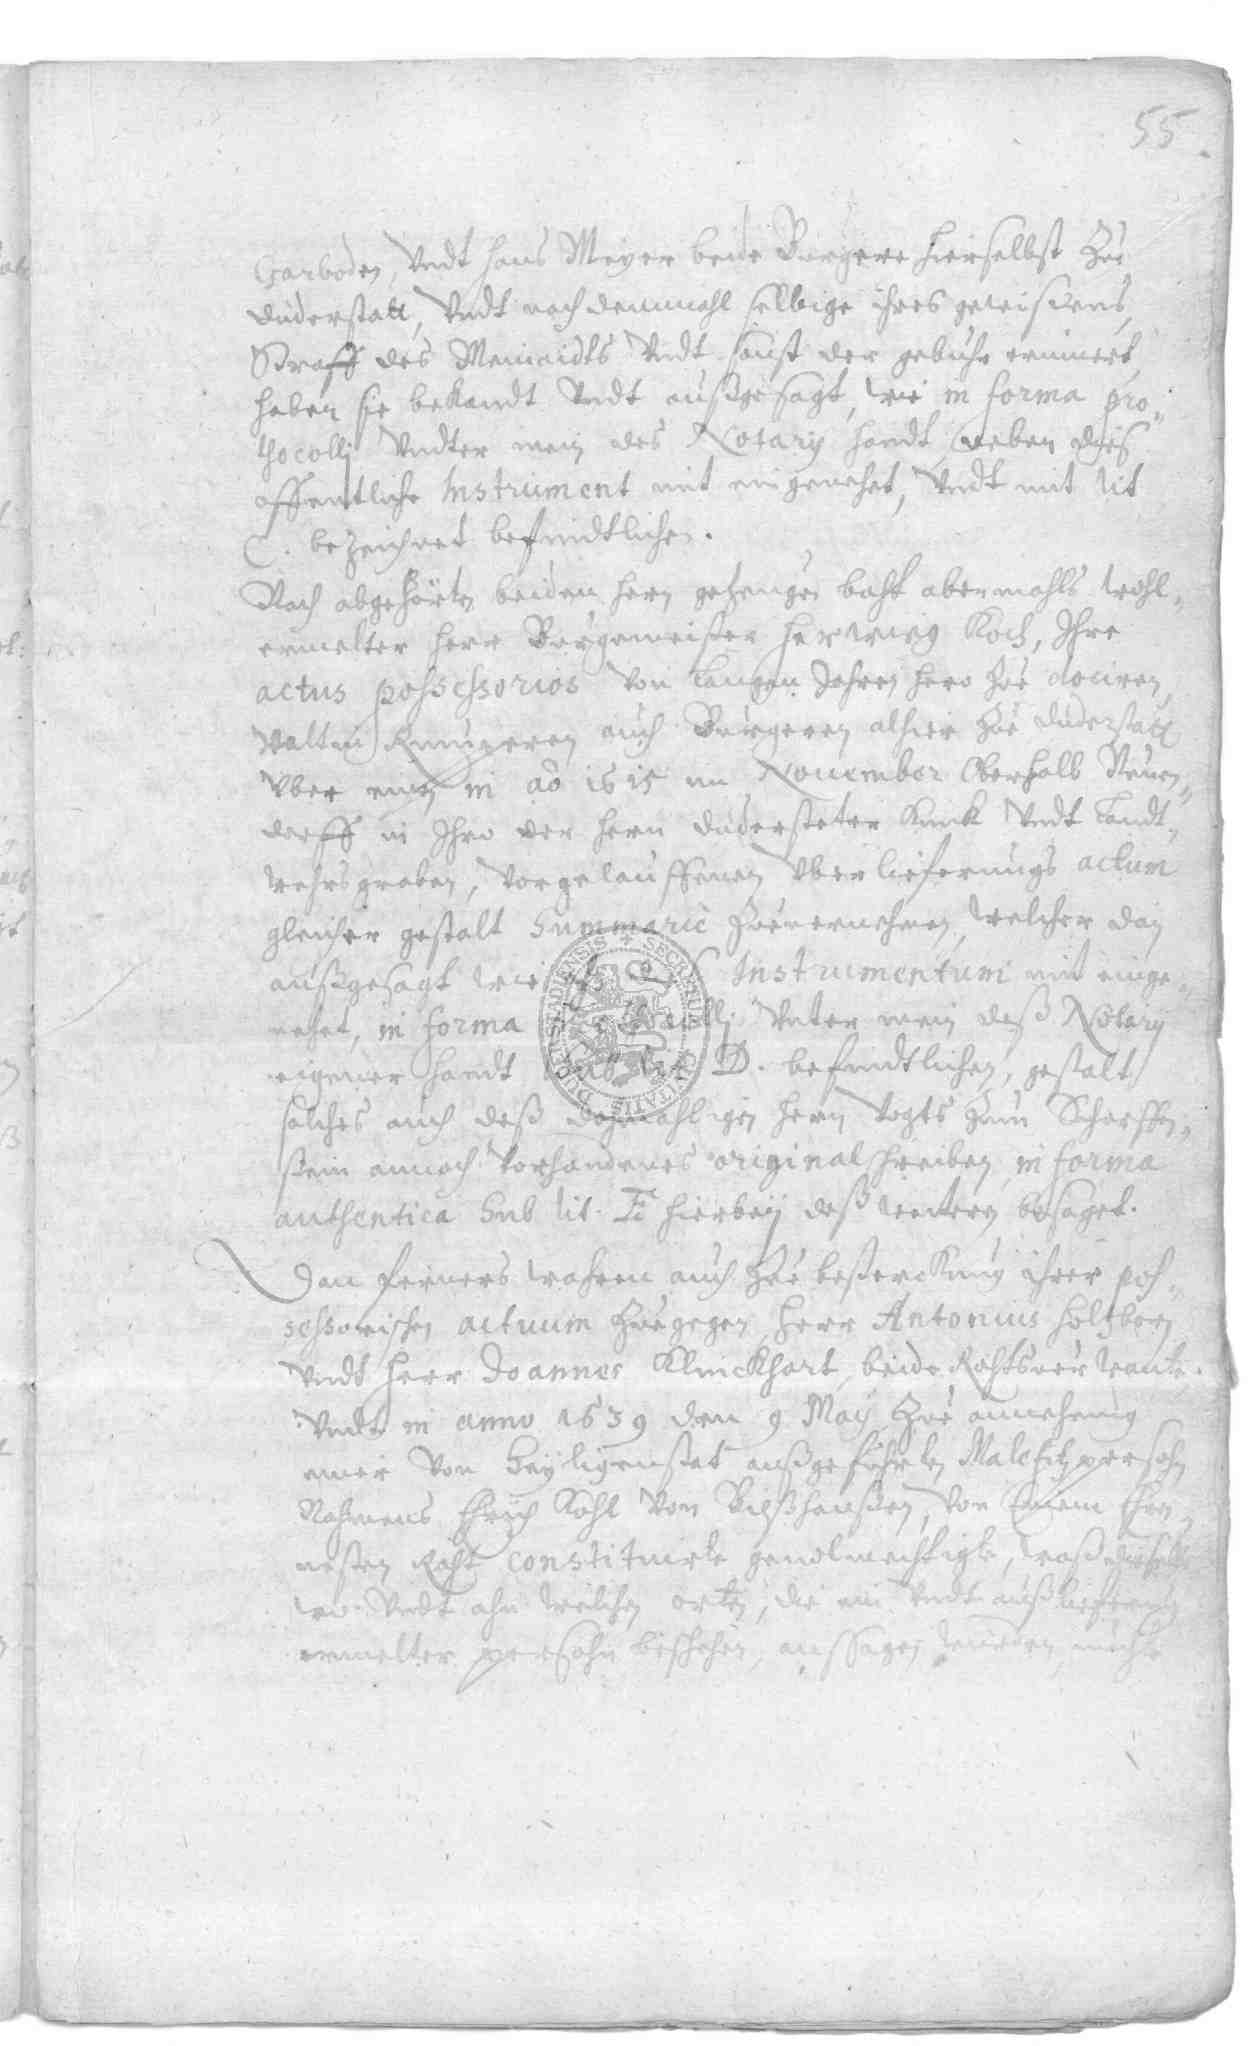 55
Garboden, Vndt hans Meyer beide Burgere hierselbst Zue
duderstatt, Vndt nach denmahl selbige ihres gewissens,
Straff des Meinaidts Vndt sonst der gebuhr erinnert,
haben sie bekandt Vndt außgesagt, wie in forma pro„
thocollj Vndter mein des Notarij handt neben dies
offentliche Instrument mit eingenehet, Vndt mit lit
C. bezeichnet befindtlichen.
Nach abgehörten beiden hern gezeugen baht abermahls wohl„
ermelter herr Burgemeister herwieg Koch, Ihre
actus possessorios von langen Jahren hero zue dociren,
Valtin auch Burgeren alhier Zue duderstatt
Vber einen in aō 1615 im Nouember Oberhalb Neuen„
dorff in Ihro der hern duderstater Knick Vndt Landt„
wehrsgraben, Vorgelauffenen Vberlieferungs actum
gleicher gestalt Summarie Zuuernehmen, welcher dan
außgesagt wie Instrumentum mit einge„
nehet, in forma Vnter mein deß Notarij
eigener handt sub lit D. befindtlichen, gestalt
solches auch deß damahligen hern Vogts Zum Scharffen„
stein annoch Vorhandenes original schreiben in forma
authentica Sub lit. E hierbeÿ deß weitern besaget.
Dan ferners wahren auch Zue besterckung ihrer pos„
sessorischen actuum Zuegegen, herr Antonius holtzborn
Vndt herr Joannes Klinckhart, beide Rahtsverwante.
Vndt in anno 1639 den 9 Maÿ Zue annehmung
einer Von Heÿligenstat außgeführten Malefitz persohn
Nahmens Ehrich Kohl Von Bilßhausen, Von Einem Ehren„
vesten Raht constituirte geuolmechtigte, waß dieselbe
wo Vndt ahn welchen orten, die ein Vndt außlieferung
ermelter persohn beschehen, aussagen wurden,
SECRETUM